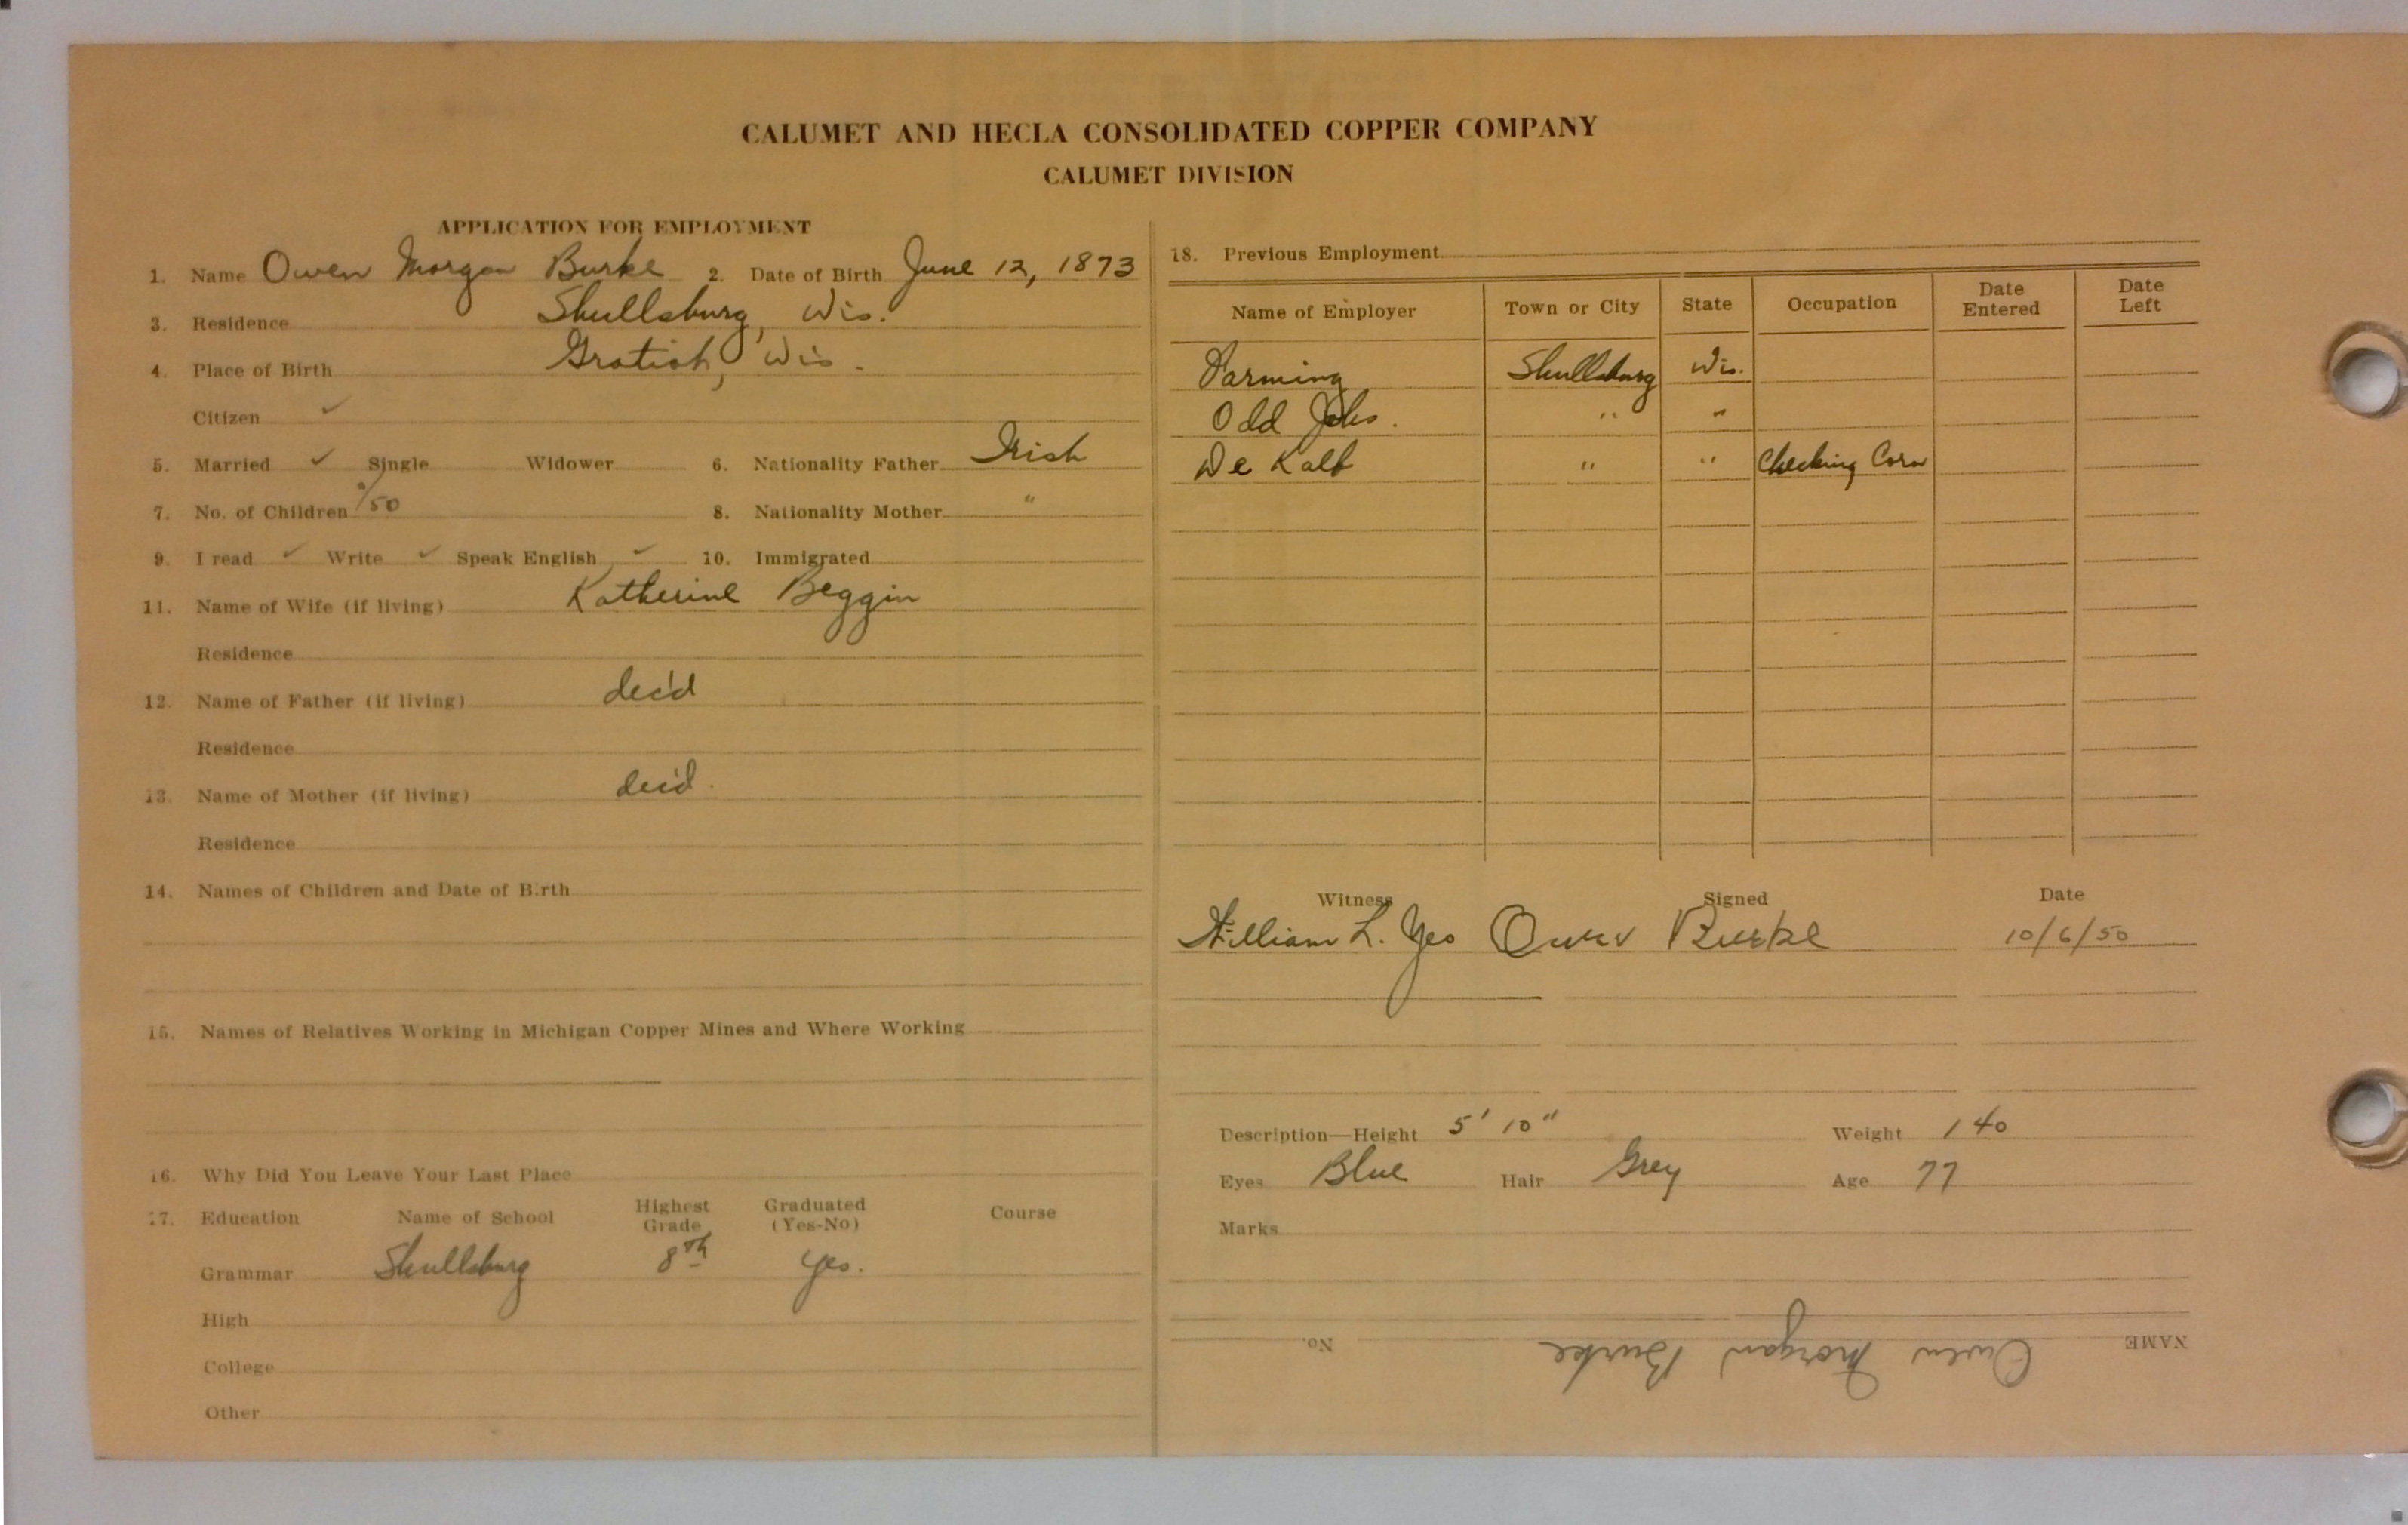 CALUMET AND HECLA CONSOLIDATED COPPER COMPANY
CALUMET DIVISION
APPLICATION FOR EMPLOYMENT
1. Name Owen Morgan Burke 2. Date of Birth June 12, 1873
3. Residence Shullsburg, Wis.
4. Place of Birth Gratiot, Wis.
Citizen ✓
5. Married ✓ Single Widower 6. Nationality Father Irish
7. No. of Children /50 8. Nationality Mother "
9. I read ✓ Write ✓ Speak English ✓ 10. Immigrated
11. Name of Wife (if living) Katherine Beggin
Residence
12. Name of Father (if living) dec'd
Residence
13. Name of Mother (if living) dec'd.
Residence
14. Names of Children and Date of Birth
15. Names of Relatives Working in Michigan Copper Mines and Where Working
16. Why Did You Leave Your Last Place
17. Education Name of School Highest Grade Graduated (Yes-No) Course
Grammar Shullsburg 8th yes.
High
College
Other
18. Previous Employment
Name of Employer Town or City State Occupation Date Entered Date Left
Farming Shullsburg Wis.
Odd Jobs. " "
De Kalb " " Checking Corn
Witness Signed Date
William L. Yeo Owen Burke 10/6/50
Description—Height 5' 10" Weight 140
Eyes Blue Hair Grey Age 77
Marks
NAME Owen Morgan Burke No.